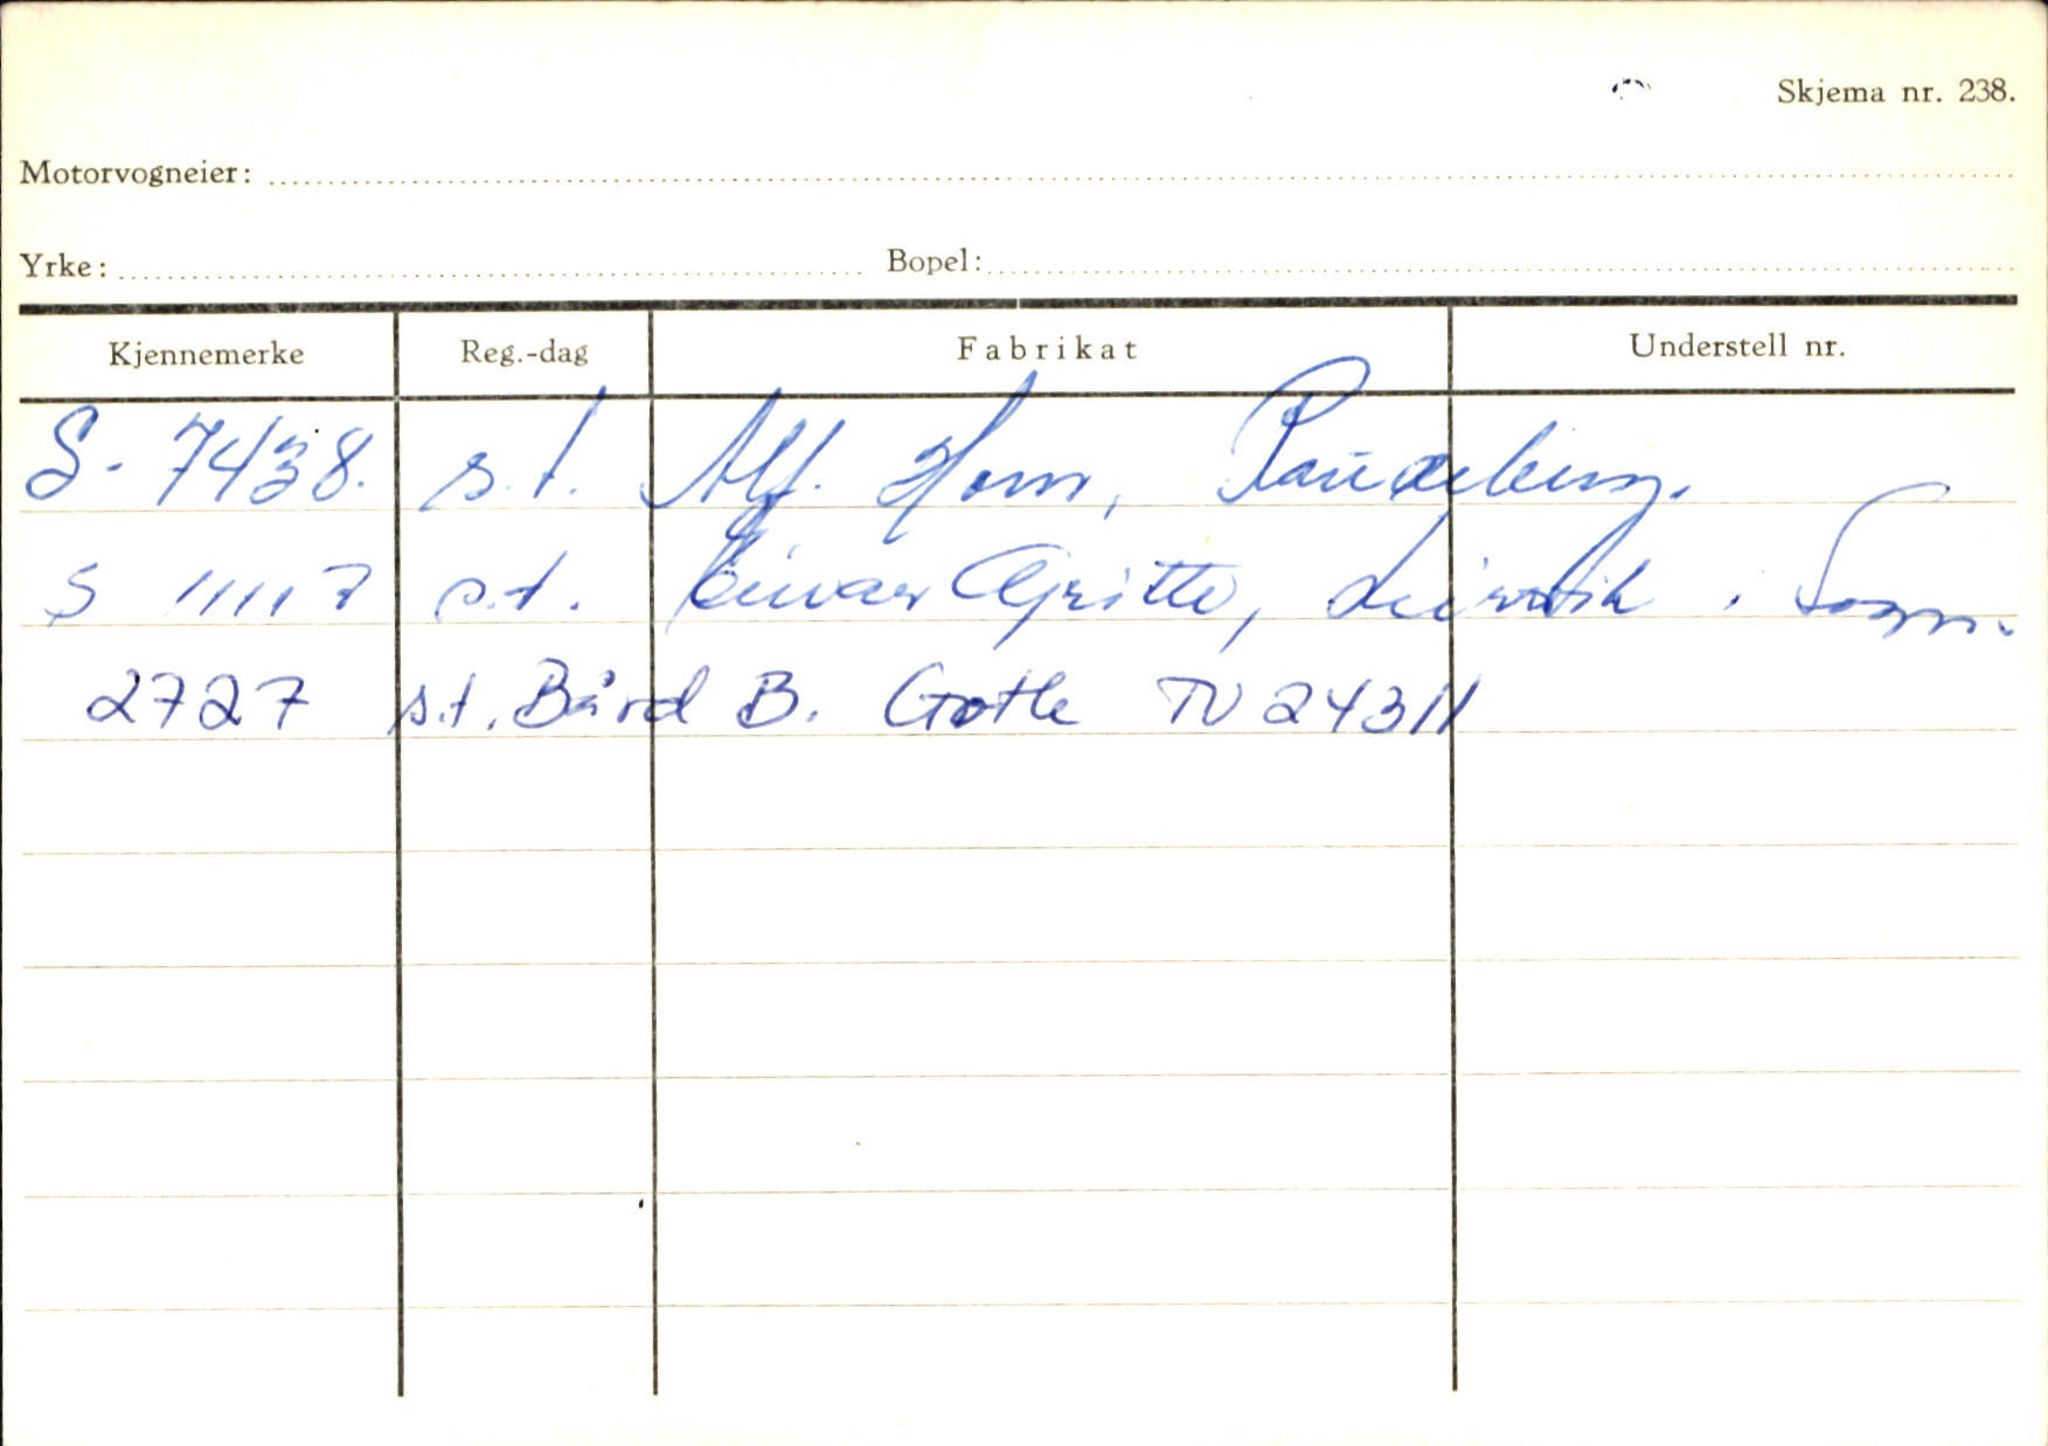 Skjema nr. 238.
Motorvogneier:
Yrke: Bopel:
Kjennemerke Reg.-dag Fabrikat Understell nr.
S- 7438. s.t. Alf. Horn, Raudeberg.
S 11117 s.t. Eivar Gjritte, Leirvik i Sogn.
2727 s.t. Bård B. Gotle TV 24311